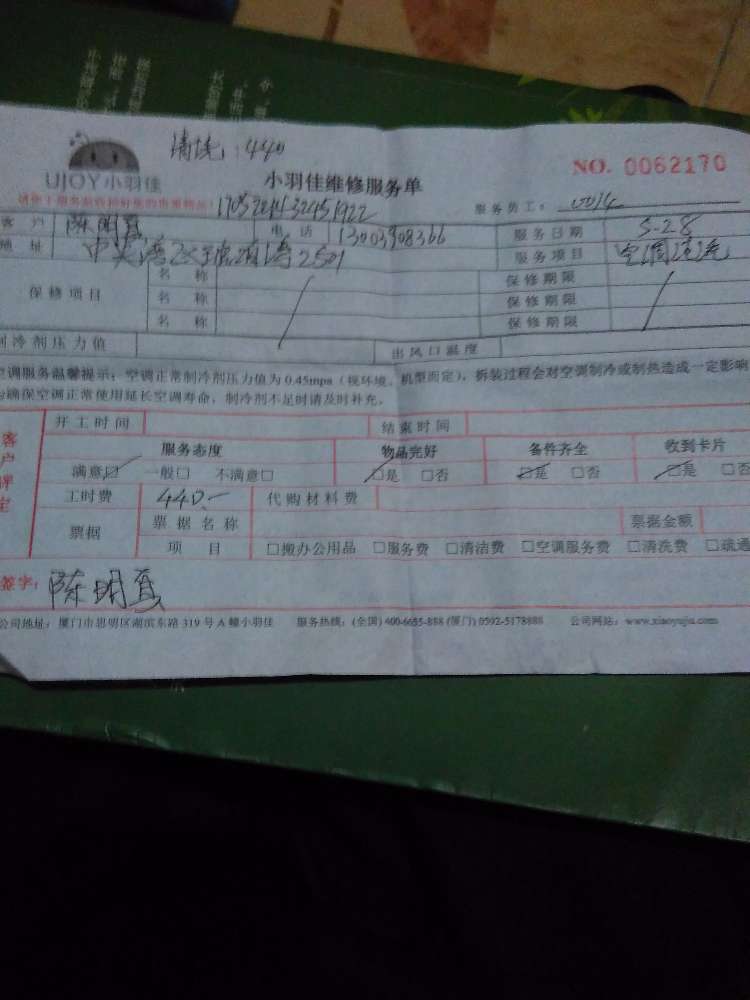 清洗:440
UJOY小羽佳
小羽佳维修服务单
NO. 0062170
服务员工:
客户 陈明夏 电话 13003908366 服务日期 5-28
地址 2501 服务项目 空调清洗
保修项目 名称 保修期限
名称 保修期限
名称 保修期限
制冷剂压力值 出风口温度
空调服务温馨提示:空调正常制冷剂压力值为0.45mpa(视环境、机型而定),拆装过程会对空调制冷或制热造成一定影响
为确保空调正常使用延长空调寿命,制冷剂不足时请及时补充。
客户评定
开工时间 结束时间
服务态度 物品完好 备件齐全 收到卡片
满意□ 一般□ 不满意□ □是 □否 □是 □否 □是 □否
工时费 440.- 代购材料费
票据 票据名称 票据金额
项目 □搬办公用品 □服务费 □清洁费 □空调服务费 □清洗费 □疏通
签字: 陈明夏
公司地址:厦门市思明区湖滨东路319号A幢小羽佳 服务热线:(全国)400-6655-888 (厦门)0592-5178888 公司网站:www.xiaoyujia.com